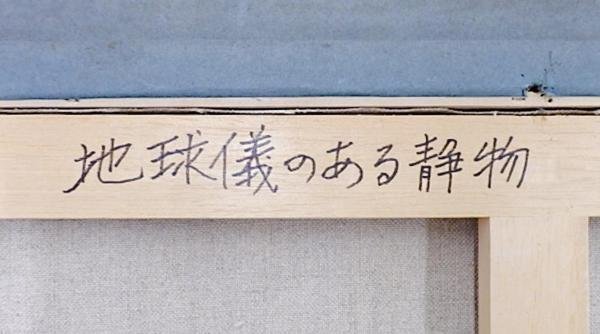 地球儀のある静物